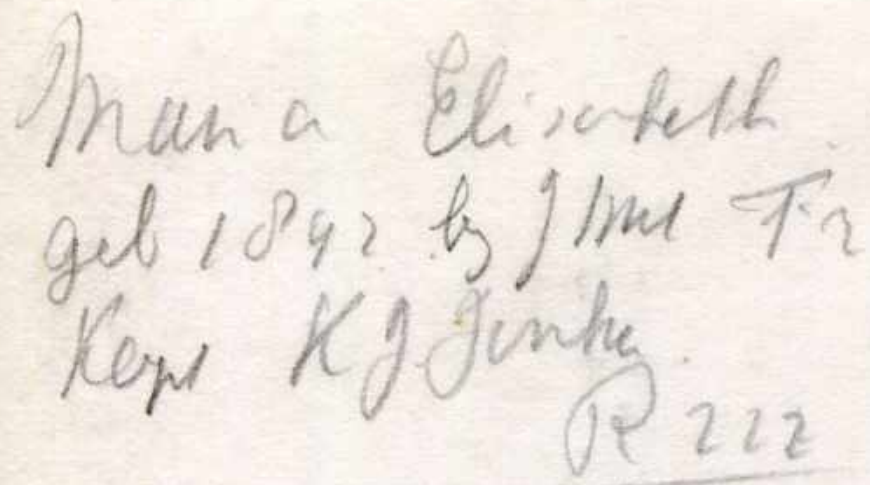 Maria Elisabeth
geb 1892 by J Smit Tz
Kapt K J Jonker
R 222